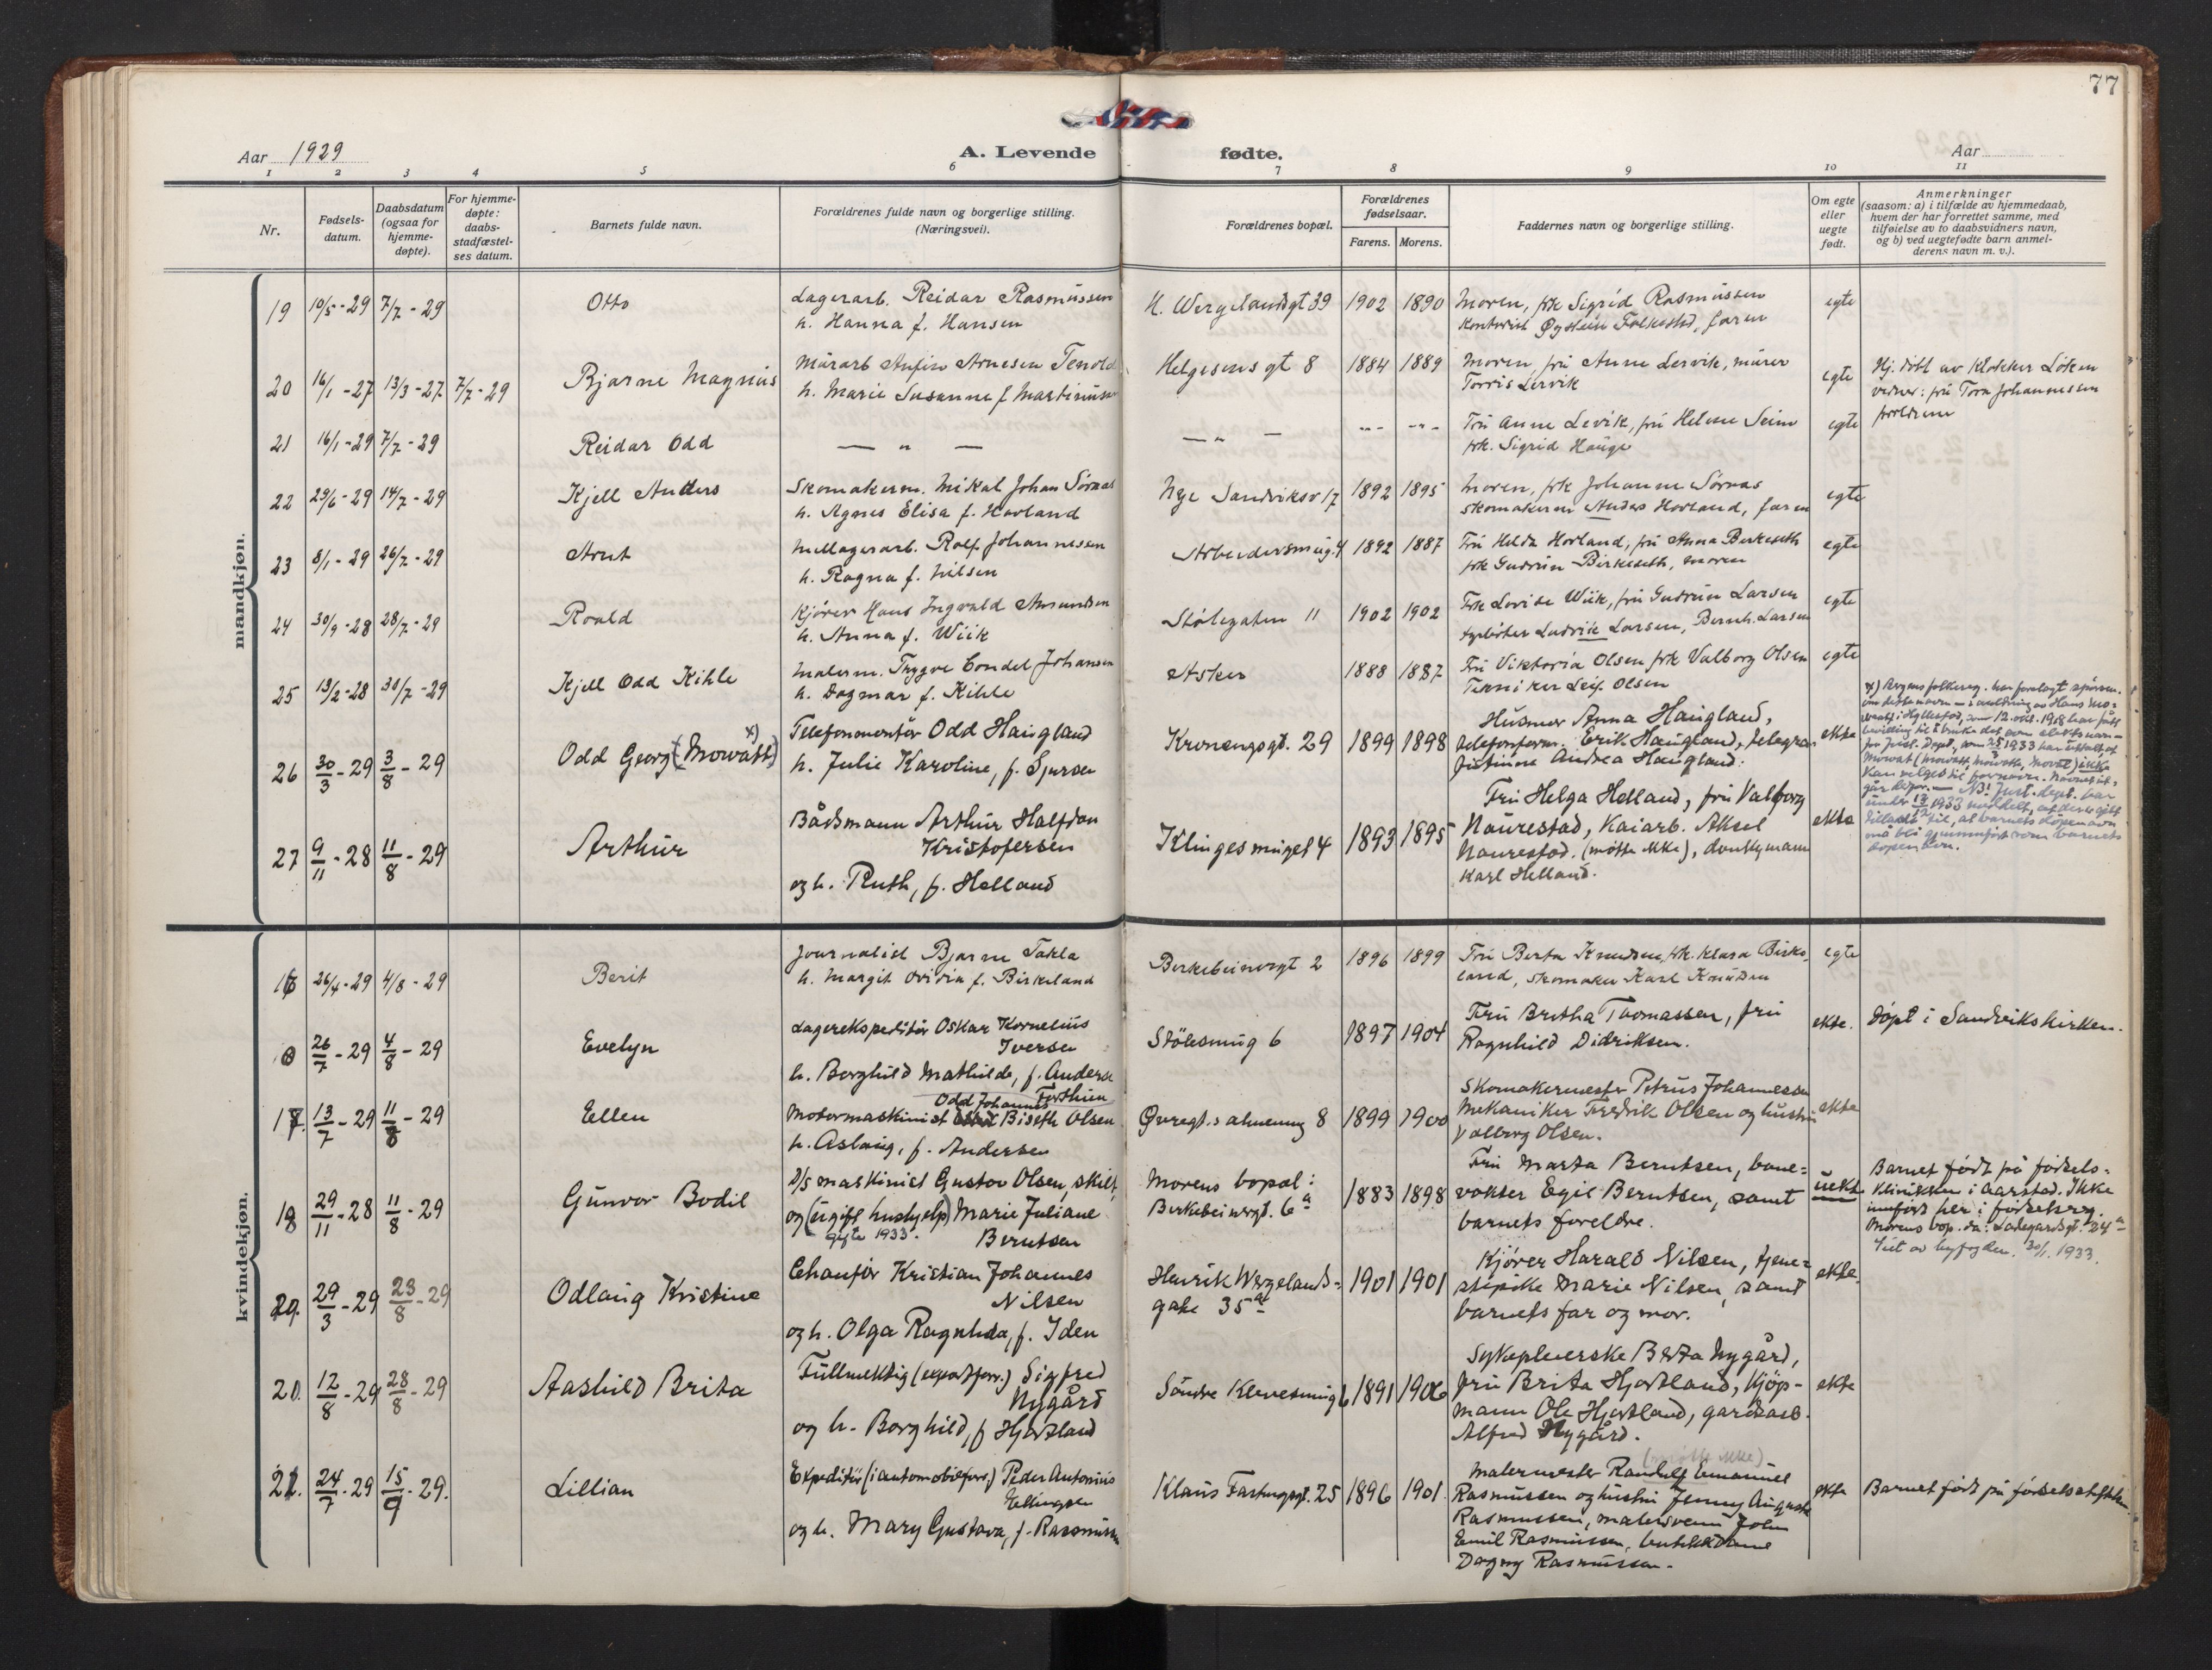 77
Aar 1929
A. Levende fødte.
Aar
1 2 3 4 5 6 7 8 9 10 11
Nr.
Fødsels-
datum.
Daabsdatum
(ogsaa for
hjemme-
døpte).
For hjemme-
døpte:
daabs-
stadfæstel-
ses datum.
Barnets fulde navn.
Forældrenes fulde navn og borgerlige stilling.
(Næringsvei).
Forældrenes bopæl.
Forældrenes
fødselsaar.
Farens. Morens.
Faddernes navn og borgerlige stilling.
Om egte
eller
uegte
født.
Anmerkninger
(saasom: a) i tilfælde av hjemmedaab,
hvem der har forrettet samme, med
tilføielse av to daabsvidners navn,
og b) ved uegtefødte barn anmel-
derens navn m. v.).
mandkjøn.
19 10/5-29 7/7-29 Otto Lagerarb. Reidar Rasmussen
h. Hanna f. Hansen
H. Wergelandsgt 39 1902 1890 Moren, frk Sigrid Rasmussen
Kontorist Øystein Falkestad, faren
egte
20 16/1-27 13/3-27 7/7-29 Bjarne Magnus Murarb Anfin Arnesen Tenold
h. Marie Susanne f Martinusen
Helgesens gt 8 1884 1889 Moren, fru Anne Lervik, murer
Torris Lervik
egte Hj. døbt av Klokker Löken
vidner: fru Tora Johannessen
foreldrene
21 16/1-29 7/7-29 Reidar Odd — " —
— " — -"- -"- Fru Anne Levik, fru Helene Seim
frk. Sigrid Hauge
egte
22 23/6-29 14/7-29 Kjell Anders Skomakerm. Mikal Johan Sörnas
h. Agnes Elisa f. Hovland
Nye Sandviksv 17 1892 1895 Moren, frk Johanne Sörnas
skomakerm Anders Hovland, faren
egte
23 8/1-29 26/7-29 Arnt Mellagerarb. Rolf Johannesen
h. Ragna f. Nilsen
Arbeidersmug. 4 1892 1887 Fru Hilda Hovland, fru Anna Birkeseth
frk Gudrun Birkeseth, moren
egte
24 30/9-28 28/7-29 Roald Kjörer Hans Ingvald Amundsen
h. Anna f. Wiik
Stölegaten 11 1902 1902 Frk Lovise Wiik, fru Gudrun Larsen
fyrböter Ludvik Larsen, Bernh. Larsen
egte
25 13/2-28 30/7-29 Kjell Odd Kihle Malerm. Trygve Condel Johansen
h. Dagmar f. Kihle
Asker 1888 1887 Fru Viktoria Olsen frk Valborg Olsen
Tekniker Leif Olsen
egte
26 30/3-29 3/8-29 Odd Georg (Mowatt) x) Telefonmontör Odd Haugland
h. Julie Karoline, f. Sjursen
Kronengsgt. 29 1899 1898 Husmor Anna Haugland,
telefonform. Erik Haugland, telegra-
fistinne Andrea Haugland.
ekte
27 9/11-28 11/8-29 Arthur Båtsmann Arthur Halfdan
Kristofersen
og h. Ruth, f. Helland
Klingesmuget 4 1893 1895 Fru Helga Helland, fru Valborg
Naurestad, Kaiarb. Aksel
Naurestad. (møtte ikke), donkymann
Karl Helland.
ekte
kvindekjøn.
16 26/4-29 4/8-29 Berit Journalist Bjarne Takla
h. Margit Ovidia f. Birkeland
Birkebeinergt 2 1896 1899 Fru Berta Knudsen, frk. Klara Birke-
land, skomaker Karl Knudsen
egte
26/7-29 4/8-29 Evelyn Lagerekspeditör Oskar Kornelius
Iversen
h. Borghild Mathilde, f. Andersen
Stölesmug 6 1897 1904 Fru Bertha Thomassen, fru
Ragnhild Didriksen.
ekte. döpt i Sandvikskirken.
17. 13/7-29 11/8-29 Ellen Odd Johannes
Motormaskinist Biseth Olsen
h. Aslaug, f. Andersen
Övregt.s almenning 8 1899 1900 Skomakermester Petrus Johannessen
Mekaniker Fredrik Olsen og hustru
Valborg Olsen.
ekte
18 29/11-28 11/8-29 Gunvor Bodil D/s maskinist Gustav Olsen, skilt,
og (ugift hushjelp) Marie Juliane
gifte 1933. Berntsen
Morens bopæl:
Birkebeinergt. 6a 1883 1898 Fru Marta Berntsen, bane-
vokter Egil Berntsen, samt
barnets foreldre.
uekte Barnet födt på födsels-
klinikken i Aarstad. Ikke
innfört her i födselsreg.
Morens bop. da: Ladegårdsgt. 24a
30/1.1933.
29/3-29 23/8-29 Odlaug Kristine Chauför Kristian Johannes
Nilsen
og h. Olga Ragnhilda, f. Iden
Henrik Wergelands-
gate 35a 1901 1901 Kjörer Harald Nilsen, tjene-
stepike Marie Nilsen, samt
barnets far og mor.
ekte.
20. 12/8-29 28/8-29 Aashild Brita Fullmektig (exportforr.) Sigfred
Nygård
og h. Borghild, f Hjortland
Söndre Klevesmug 6 1891 1906 Sykepleierske Berta Nygård,
fru Brita Hjortland, Kjöp-
mann Ole Hjortland, gardsarb.
Alfred Nygård.
ekte
21. 24/7-29 15/9-29. Lillian Expeditör (i automobilforr.) Peder Antonius
Ellingsen
og h. Mary Gustava, f. Rasmussen
Klaus Fastingsgt. 25 1896 1901. (mötte ikke)
Malermester Randulf Emanuel
Rasmussen og hustru Jenny Auguste
Rasmussen, malersvenn John
Emil Rasmussen, butikkdame
Dagny Rasmussen.
ekte Barnet födt på födselsstiftelsen.